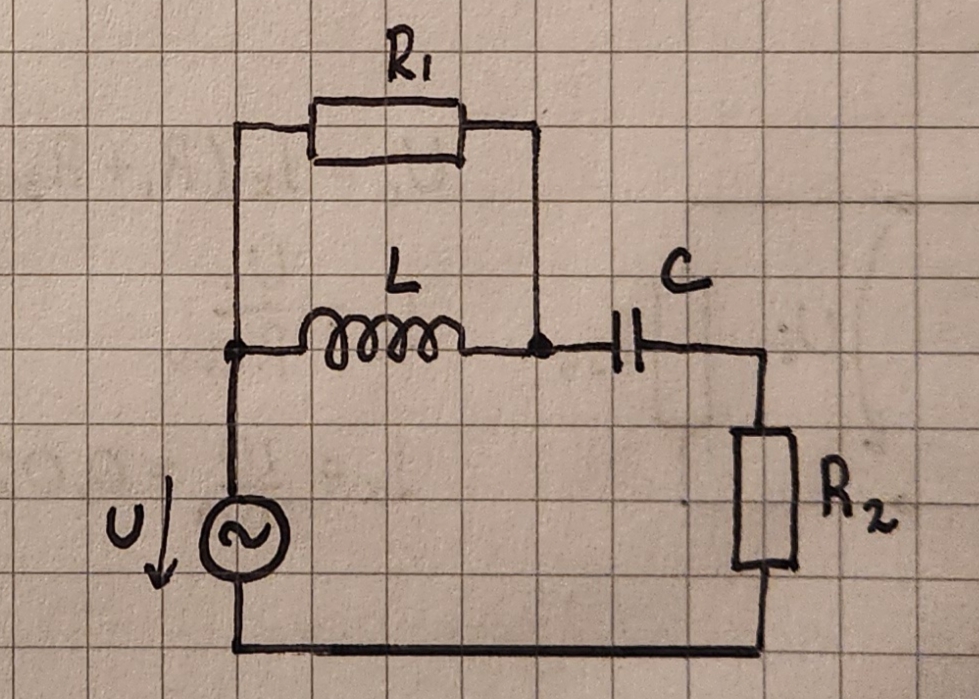 R1
L
C
U
R2